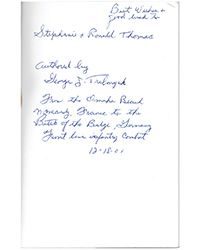 Best Wishes &
good luck to
Stephanie & Ronald Thomas
Authored by
George J.
From the Omaha
Normandy, France to the
Battle of the Bulge, Germany
of Front line infantry Combat
12-18-01